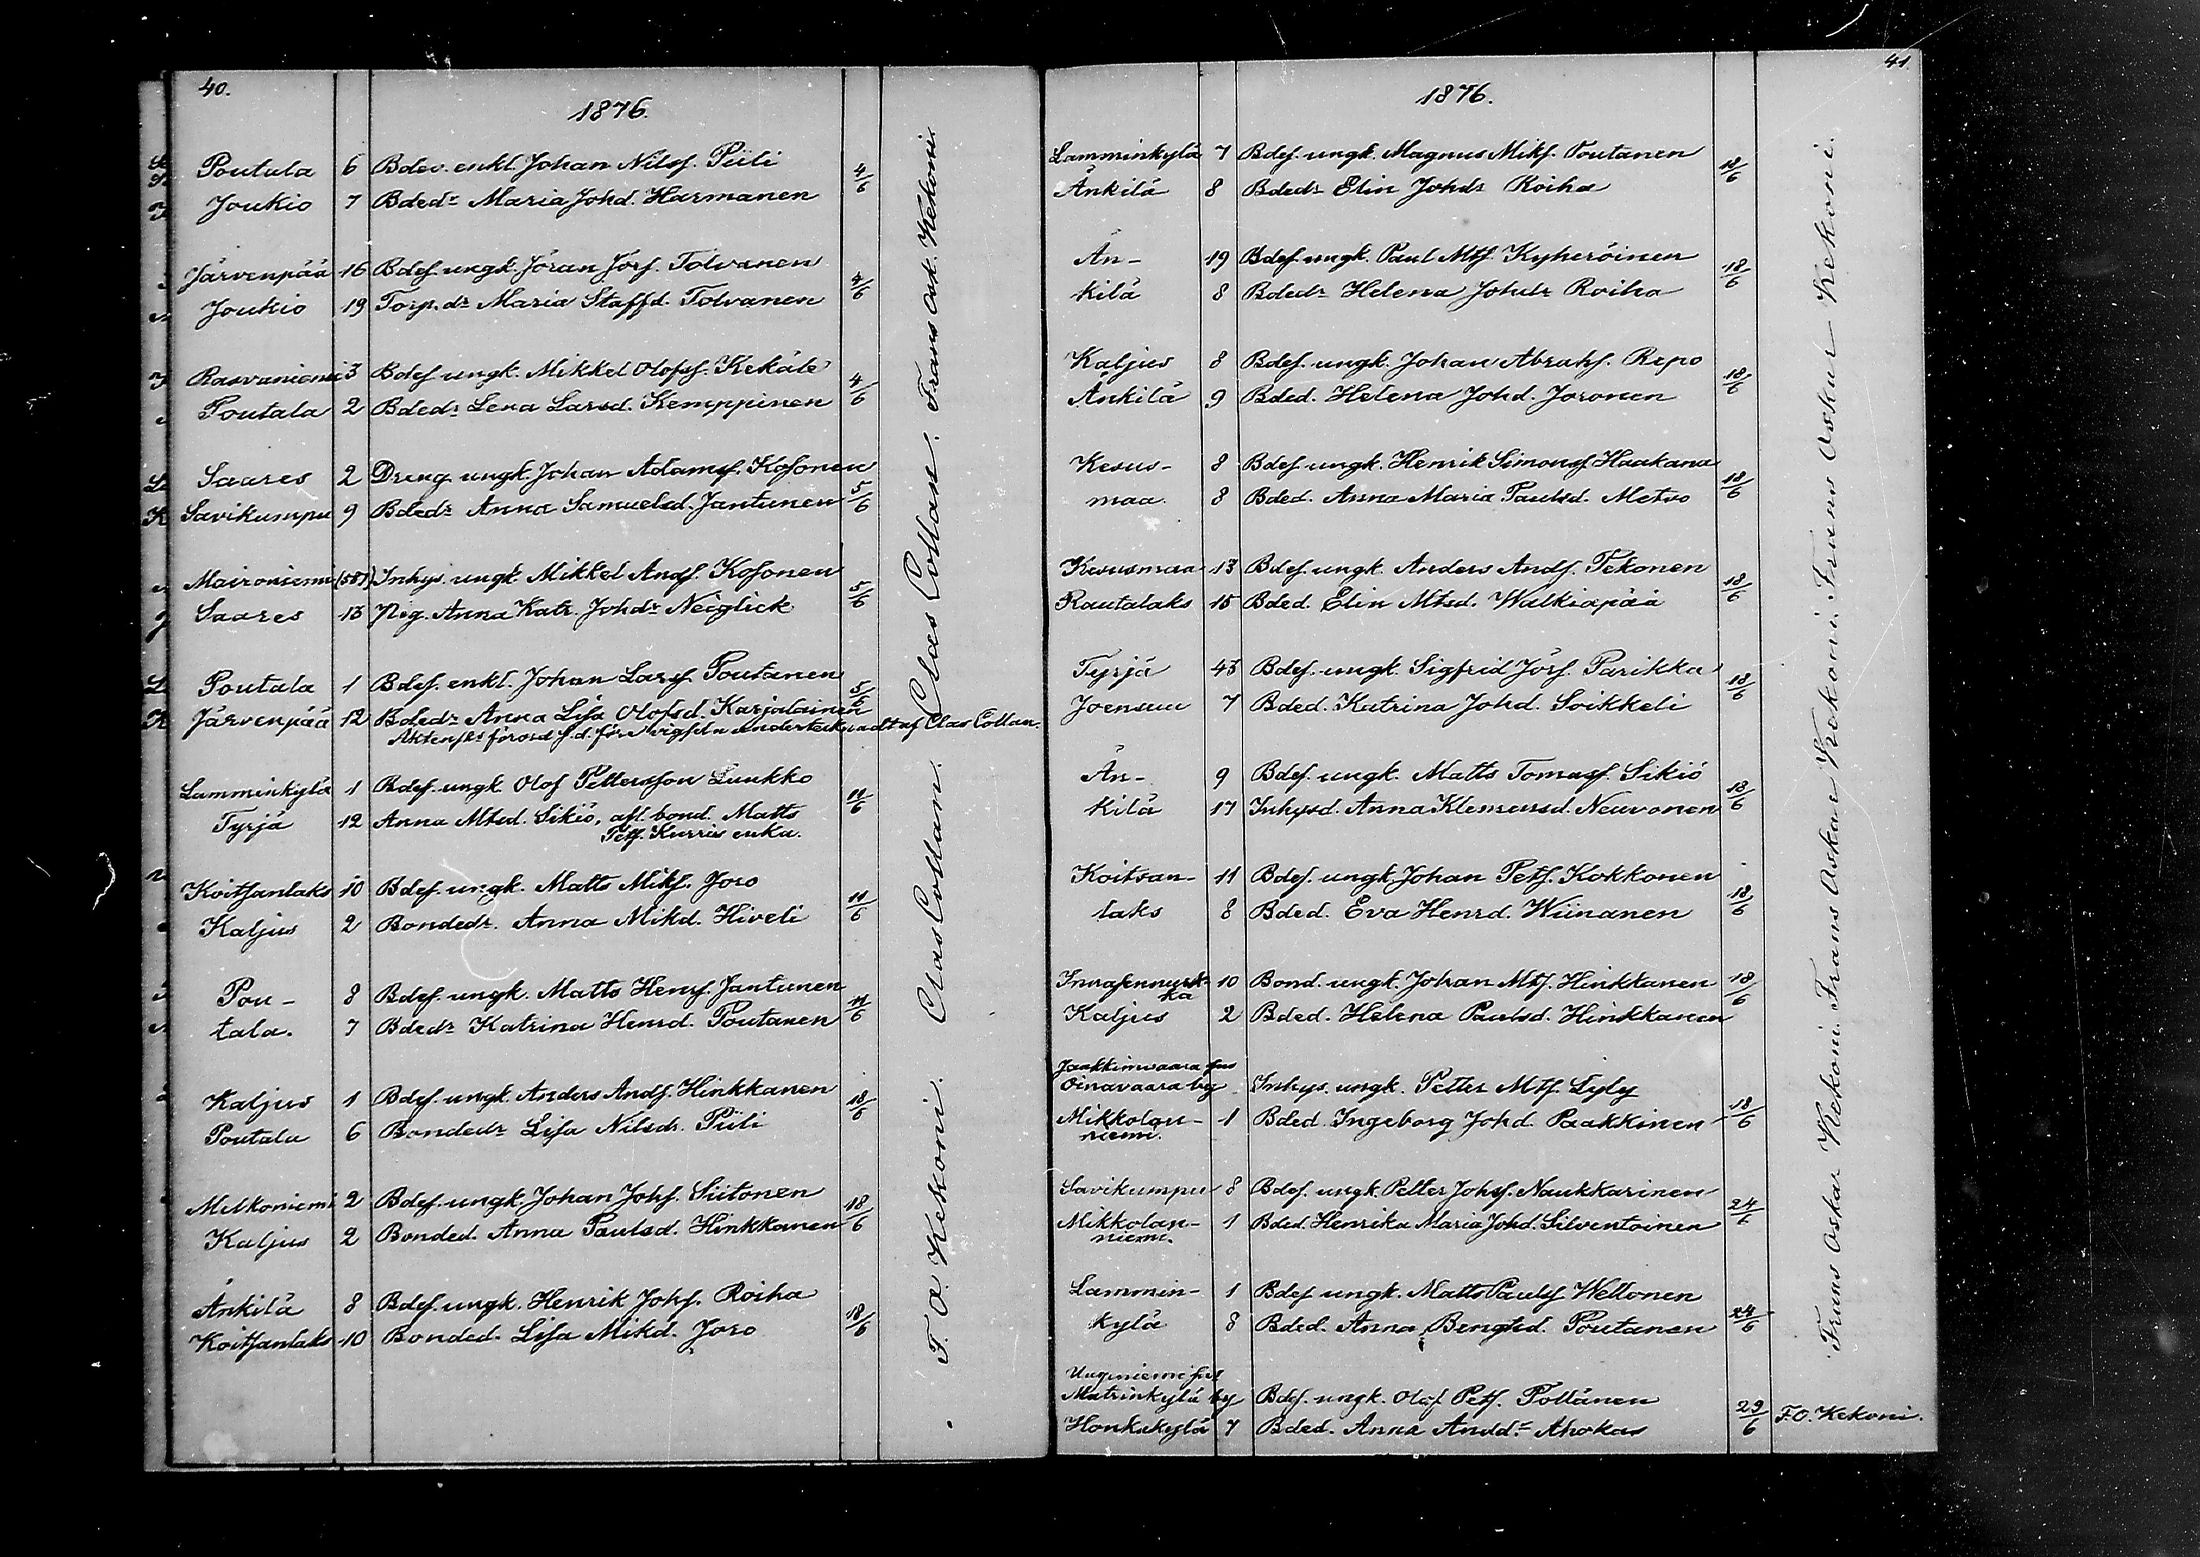 40.
1876.
Poutala 6 Bdes. enkl. Johan Nilsf. Piili 4/6
Joukio 7 Bdedr Maria Johd. Harmanen
Järvenpää 16 Bdef ungk. Jöran Jörf. Tolvanen 4/6
Joukio 19 Torp.dr Maria Staffd. Tolvanen
Rasvaniemi 3 Bdef ungk. Mikkel Olofsf. Kekäle 4/6
Poutala 2 Bdedr Lena Larsd. Kemppinen
Saares 2 Dreng ungk. Johan Adamsf. Kosonen 5/6
Savikumpu 9 Bdedr Anna Samuelsd. Jantunen
Maironiemi (587) Inhys. ungk Mikkel Andf. Kosonen 5/6
Saares 13 Pig. Anna Katr. Johdr Neiglick
Poutala 1 Bdef. enkl. Johan Larsf Poutanen 5/6
Järvenpää 12 Bdedr Anna Lisa Olofsd. Karjalainen
Äktensk: förord f.d. före vigseln undertecknadt af Clas Collan.
Lamminkylä 1 Bdef. ungk Olof Pettersson Luukko 11/6
Tyrjä 12 Anna Mtsd. Sikiö, afl. bond. Matts
Petf. Kurris enka.
Koitsanlaks 10 Bdef. ungk. Matts Mikf. Joro 11/6
Kaljus 2 Bondedr. Anna Mikd. Hiveli
Pou- 8 Bdef. ungk. Matts Henrf. Jantunen 11/6
tala. 7 Bdedr Katrina Henrd. Poutanen
Kaljus 1 Bdef. ungk. Anders Andf. Hinkkanen 18/6
Poutala 6 Bondedr Lisa Nilsdr. Piili
Melkoniemi 2 Bdef. ungk. Johan Johf. Siitonen 18/6
Kaljus 2 Bonded. Anna Paulsd. Hinkkanen
Änkilä 8 Bdef. ungk. Henrik Johf. Roiha 18/6
Koitsanlaks 10 Bonded. Lisa Mikd. Joro
F. O. Kekoni. Clas Collan. Claes Collan. Frans Osk. Kekoni.
41.
1876.
Lamminkylä 7 Bdef. ungk. Magnus Mikf. Poutanen 18/6
Änkilä 8 Bdedr Elin Johdr Roiha
Än- 19 Bdef ungk. Paul Mtf. Kyheröinen 18/6
kilä 8 Bdedr Helena Johdr Roiha
Kaljus 8 Bdef. ungk. Johan Abrahf. Repo 18/6
Änkilä 9 Bded. Helena Johd. Joronen
Kesus- 8 Bdef ungk. Henrik Simonsf Haakana 18/6
maa. 8 Bded. Anna Maria Paulsd. Metso
Kesusmaa 13 Bdef. ungk. Anders Andf. Tekonen 18/6
Rautalaks 15 Bded. Elin Mtsd. Walkiapää
Tyrjä 43 Bdef. ungk. Sigfrid Jörf. Parikka 18/6
Joensuu 7 Bded. Katrina Johd. Soikkeli
Än- 9 Bdef. ungk. Matts Tomasf. Sikiö 18/6
kilä 17 Inhysd. Anna Klemensd. Neuvonen
Koitsan- 11 Bdef. ungk. Johan Petf. Kokkonen 18/6
laks 8 Bded. Eva Henrd. Wiinanen
10 Bond. ungk. Johan Mtf. Hinkkanen 18/6
Kaljus 2 Bded. Helena Paulsd. Hinkkanen
Jaakkimvaara
Oinavaara by Inhys. ungk. Petter Mtf. Lyly
Mikkolan- 1 Bded. Ingeborg Johd. Paakkinen 18/6
niemi.
Savikumpu 8 Bdef. ungk. Petter Johsf. Naukkarinen 24/6
Mikkolan- 1 Bded. Henrika Maria Johd. Silventoinen
niemi.
Lammin- 1 Bdef ungk. Matts Paulsf Wellonen 24/6
kylä 8 Bded. Anna Bengtsd. Poutanen
Uuguniemi
Matrinkylä by Bdef. ungk. Olof Petf. Pöllänen 29/6 F.O. Kekoni.
Honkakylä 7 Bded. Anna Andd. Ahokas
Frans Oskar Kekoni. Frans Oskar Kekoni. Frans Oskar Kekoni.